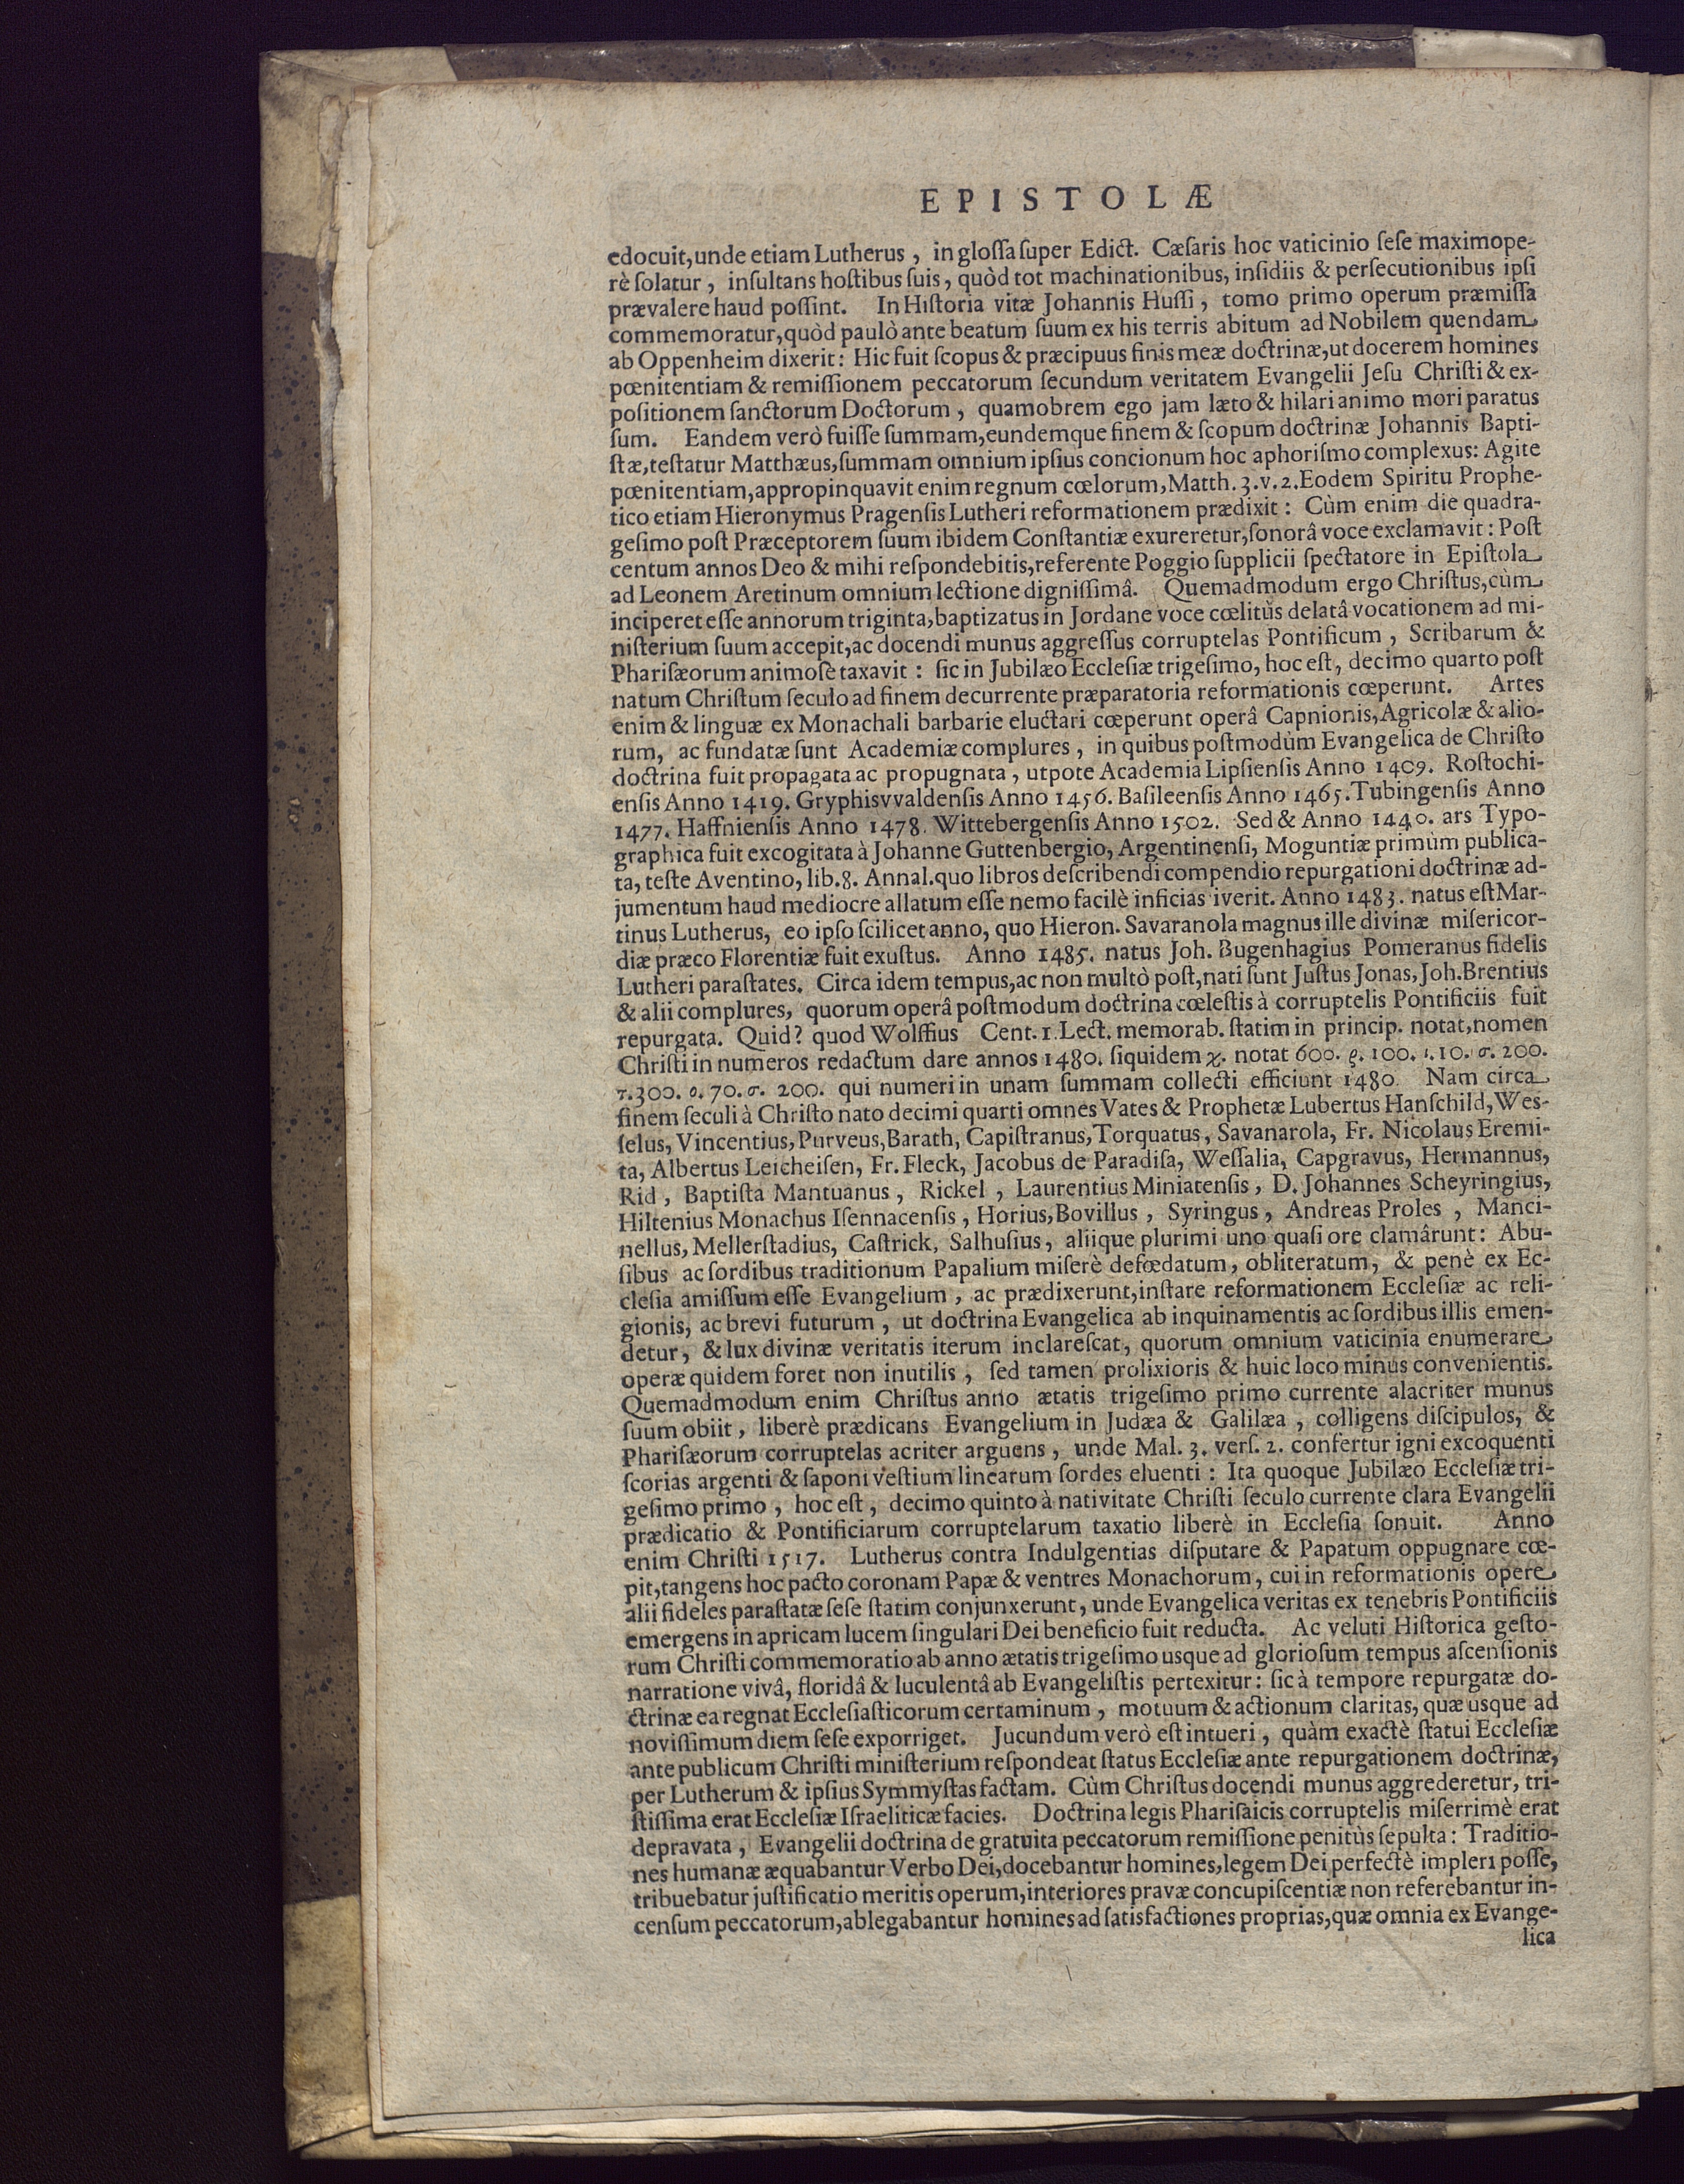 EPISTOLÆ
edocuit, unde etiam Lutherus, in gloſſa ſuper Edict. Cæſaris hoc vaticinio ſeſe maximope-
rè ſolatur, inſultans hoſtibus ſuis, quòd tot machinationibus, inſidiis & perſecutionibus ipſi
prævalere haud poſſint. In Hiſtoria vitæ Johannis Huſſi, tomo primo operum præmiſſa
commemoratur, quòd paulò ante beatum ſuum ex his terris abitum ad Nobilem quendam
ab Oppenheim dixerit: Hic fuit ſcopus & præcipuus finis meæ doctrinæ, ut docerem homines
pœnitentiam & remiſſionem peccatorum ſecundum veritatem Evangelii Jeſu Chriſti & ex-
poſitionem ſanctorum Doctorum, quamobrem ego jam læto & hilari animo mori paratus
ſum. Eandem verò fuiſſe ſummam, eundemque finem & ſcopum doctrinæ Johannis Bapti-
ſtæ, teſtatur Matthæus, ſummam omnium ipſius concionum hoc aphoriſmo complexus: Agite
pœnitentiam, appropinquavit enim regnum cœlorum, Matth. 3. v. 2. Eodem Spiritu Prophe-
tico etiam Hieronymus Pragenſis Lutheri reformationem prædixit: Cùm enim die quadra-
geſimo poſt Præceptorem ſuum ibidem Conſtantiæ exureretur, ſonorâ voce exclamavit: Poſt
centum annos Deo & mihi reſpondebitis, referente Poggio ſupplicii ſpectatore in Epiſtola
ad Leonem Aretinum omnium lectione digniſſimâ. Quemadmodum ergo Chriſtus, cùm
inciperet eſſe annorum triginta, baptizatus in Jordane voce cœlitùs delatâ vocationem ad mi-
niſterium ſuum accepit, ac docendi munus aggreſſus corruptelas Pontificum, Scribarum &
Phariſæorum animoſè taxavit: ſic in Jubilæo Eccleſiæ trigeſimo, hoc eſt, decimo quarto poſt
natum Chriſtum ſeculo ad finem decurrente præparatoria reformationis cœperunt. Artes
enim & linguæ ex Monachali barbarie eluctari cœperunt operâ Capnionis, Agricolæ & alio-
rum, ac fundatæ ſunt Academiæ complures, in quibus poſtmodùm Evangelica de Chriſto
doctrina fuit propagata ac propugnata, utpote Academia Lipſienſis Anno 1409. Roſtochi-
enſis Anno 1419. Gryphisvvaldenſis Anno 1456. Baſileenſis Anno 1465. Tubingenſis Anno
1477. Haffnienſis Anno 1478. Wittebergenſis Anno 1502. Sed & Anno 1440. ars Typo-
graphica fuit excogitata à Johanne Guttenbergio, Argentinenſi, Moguntiæ primùm publica-
ta, teſte Aventino, lib. 8. Annal. quo libros deſcribendi compendio repurgationi doctrinæ ad-
jumentum haud mediocre allatum eſſe nemo facilè inficias iverit. Anno 1483. natus eſt Mar-
tinus Lutherus, eo ipſo ſcilicet anno, quo Hieron. Savaranola magnus ille divinæ miſericor-
diæ præco Florentiæ fuit exuſtus. Anno 1485. natus Joh. Bugenhagius Pomeranus fidelis
Lutheri paraſtates. Circa idem tempus, ac non multò poſt, nati ſunt Juſtus Jonas, Joh. Brentius
& alii complures, quorum operâ poſtmodum doctrina cœleſtis à corruptelis Pontificiis fuit
repurgata. Quid? quod Wolffius Cent. 1. Lect. memorab. ſtatim in princip. notat, nomen
Chriſti in numeros redactum dare annos 1480. ſiquidem χ. notat 600. ϱ. 100. ι. 10. σ. 200.
τ. 300. ο. 70. σ. 200. qui numeri in unam ſummam collecti efficiunt 1480. Nam circa
finem ſeculi à Chriſto nato decimi quarti omnes Vates & Prophetæ Lubertus Hanſchild, Weſ-
ſelus, Vincentius, Purveus, Barath, Capiſtranus, Torquatus, Savanarola, Fr. Nicolaus Eremi-
ta, Albertus Leicheiſen, Fr. Fleck, Jacobus de Paradiſa, Weſſalia, Capgravus, Hermannus,
Rid, Baptiſta Mantuanus, Rickel, Laurentius Miniatenſis, D. Johannes Scheyringius,
Hiltenius Monachus Iſennacenſis, Horius, Bovillus, Syringus, Andreas Proles, Manci-
nellus, Mellerſtadius, Caſtrick, Salhuſius, aliique plurimi uno quaſi ore clamârunt: Abu-
ſibus ac ſordibus traditionum Papalium miſerè defœdatum, obliteratum, & penè ex Ec-
cleſia amiſſum eſſe Evangelium, ac prædixerunt, inſtare reformationem Eccleſiæ ac reli-
gionis, ac brevi futurum, ut doctrina Evangelica ab inquinamentis ac ſordibus illis emen-
detur, & lux divinæ veritatis iterum inclareſcat, quorum omnium vaticinia enumerare
operæ quidem foret non inutilis, ſed tamen prolixioris & huic loco minus convenientis.
Quemadmodum enim Chriſtus anno ætatis trigeſimo primo currente alacriter munus
ſuum obiit, liberè prædicans Evangelium in Judæa & Galilæa, colligens diſcipulos, &
Phariſæorum corruptelas acriter arguens, unde Mal. 3. verſ. 2. confertur igni excoquenti
ſcorias argenti & ſaponi veſtium linearum ſordes eluenti: Ita quoque Jubilæo Eccleſiæ tri-
geſimo primo, hoc eſt, decimo quinto à nativitate Chriſti ſeculo currente clara Evangelii
prædicatio & Pontificiarum corruptelarum taxatio liberè in Eccleſia ſonuit. Anno
enim Chriſti 1517. Lutherus contra Indulgentias diſputare & Papatum oppugnare cœ-
pit, tangens hoc pacto coronam Papæ & ventres Monachorum, cui in reformationis opere
alii fideles paraſtatæ ſeſe ſtatim conjunxerunt, unde Evangelica veritas ex tenebris Pontificiis
emergens in apricam lucem ſingulari Dei beneficio fuit reducta. Ac veluti Hiſtorica geſto-
rum Chriſti commemoratio ab anno ætatis trigeſimo usque ad glorioſum tempus aſcenſionis
narratione vivâ, floridâ & luculentâ ab Evangeliſtis pertexitur: ſic à tempore repurgatæ do-
ctrinæ ea regnat Eccleſiaſticorum certaminum, motuum & actionum claritas, quæ usque ad
noviſſimum diem ſeſe exporriget. Jucundum verò eſt intueri, quàm exactè ſtatui Eccleſiæ
ante publicum Chriſti miniſterium reſpondeat ſtatus Eccleſiæ ante repurgationem doctrinæ,
per Lutherum & ipſius Symmyſtas factam. Cùm Chriſtus docendi munus aggrederetur, tri-
ſtiſſima erat Eccleſiæ Iſraeliticæ facies. Doctrina legis Phariſaicis corruptelis miſerrimè erat
depravata, Evangelii doctrina de gratuita peccatorum remiſſione penitùs ſepulta: Traditio-
nes humanæ æquabantur Verbo Dei, docebantur homines, legem Dei perfectè impleri poſſe,
tribuebatur juſtificatio meritis operum, interiores pravæ concupiſcentiæ non referebantur in-
cenſum peccatorum, ablegabantur homines ad ſatisfactiones proprias, quæ omnia ex Evange-
lica